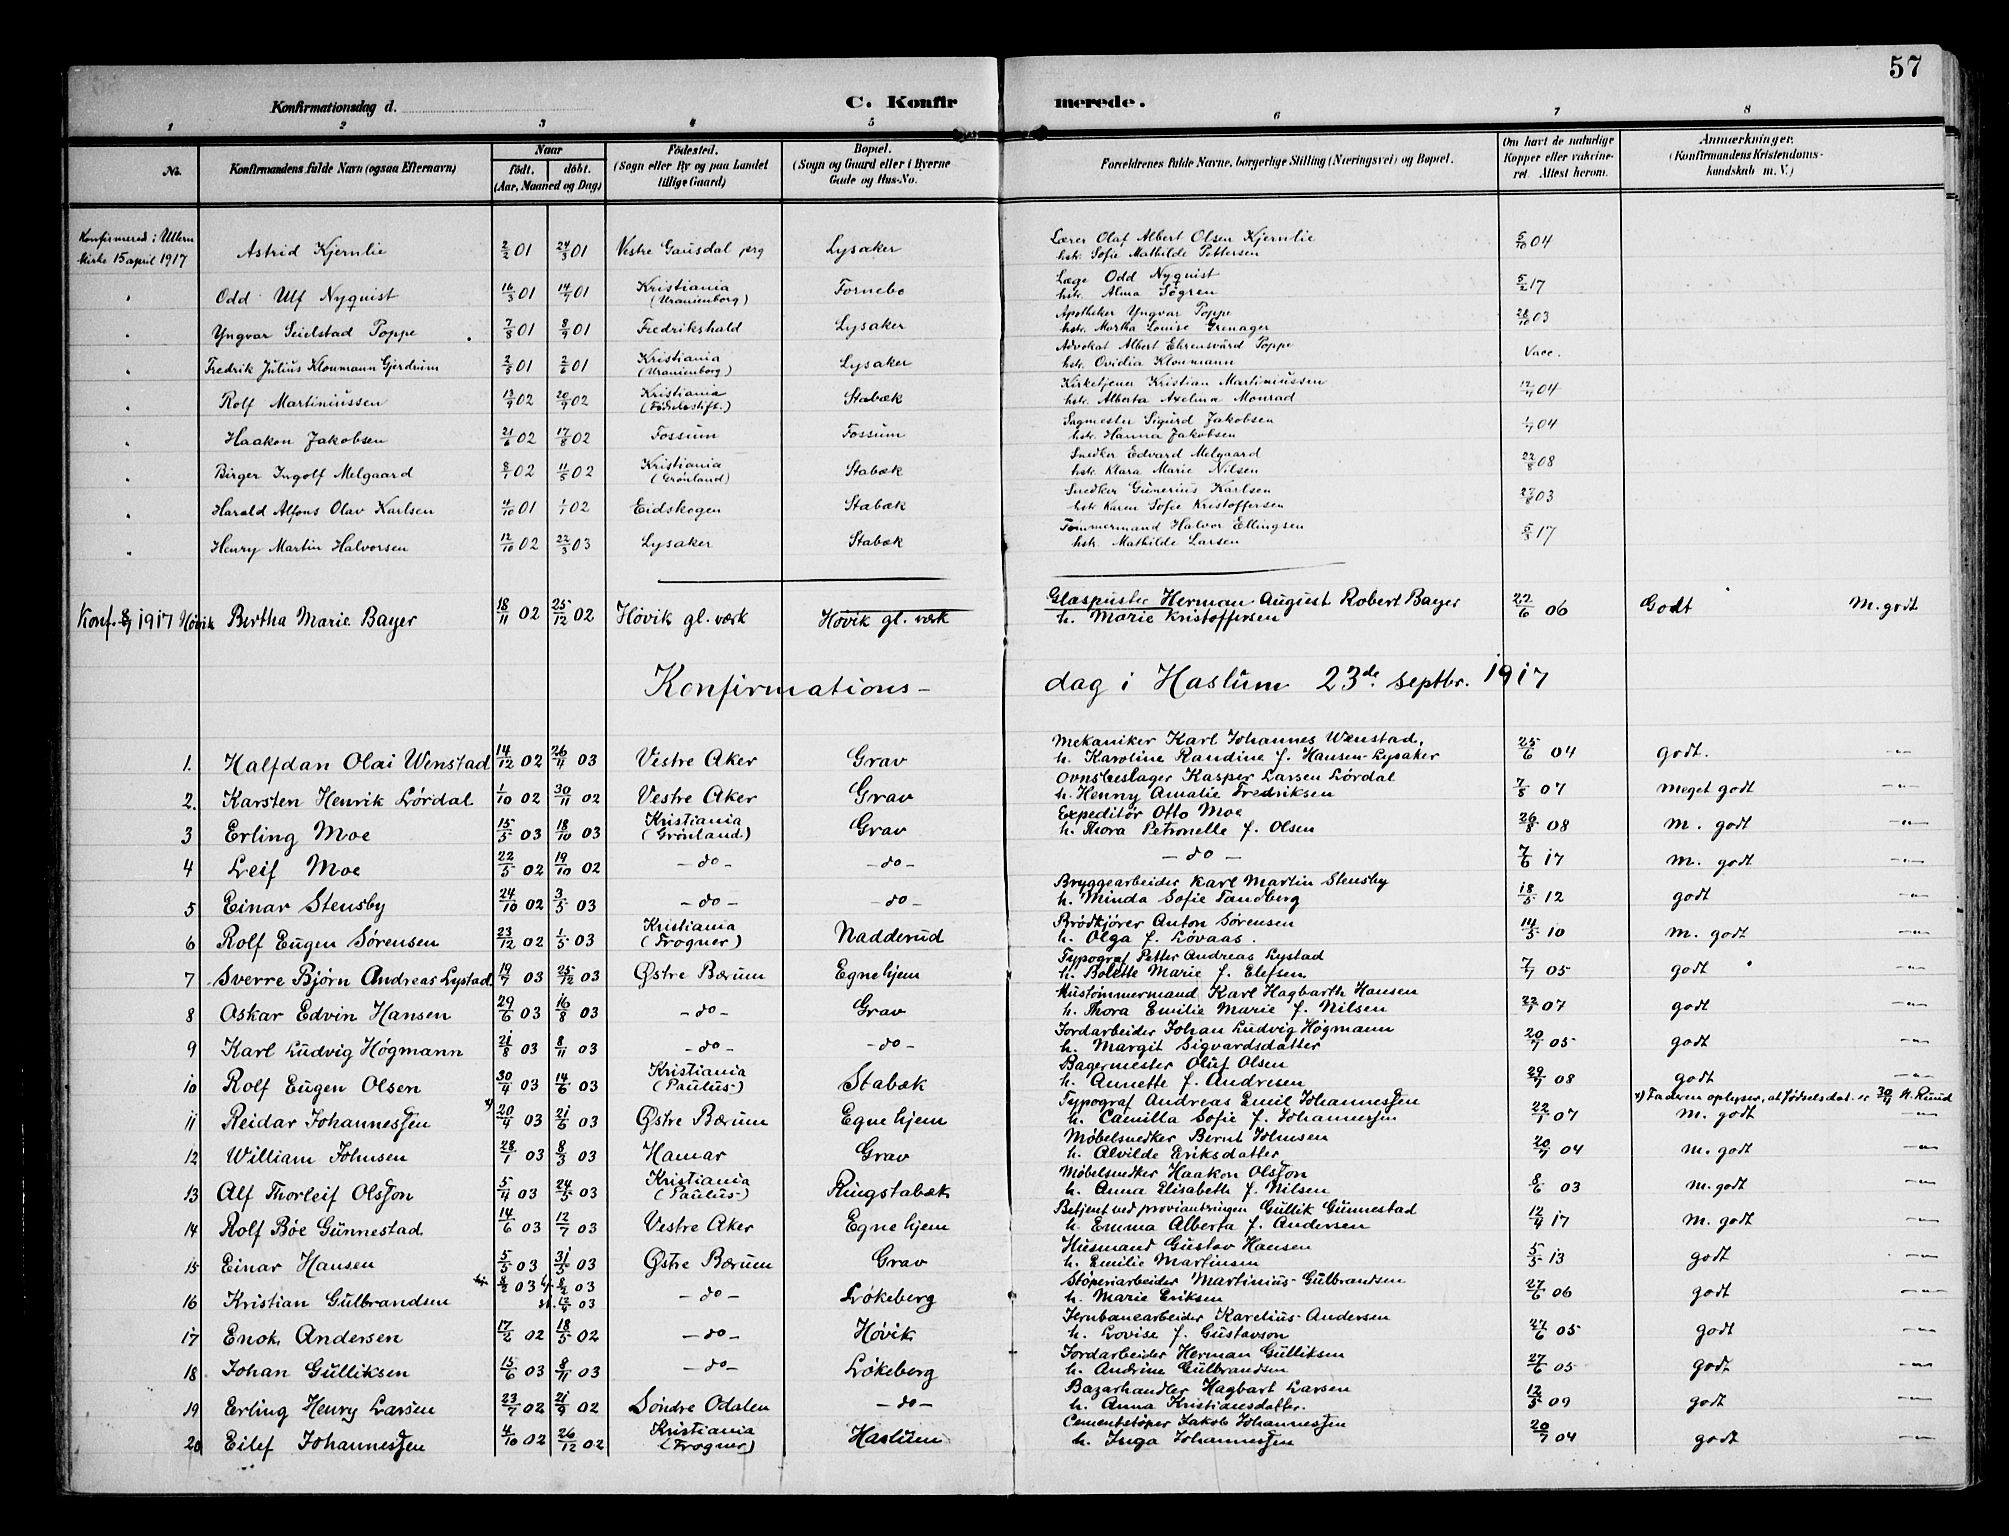 57
Konfirmationsdag d. C. Konfirmerede.
1 2 3 4 5 6 7 8
No. Konfirmandens fulde Navn (ogsaa Efternavn) Naar født. døbt. (Aar, Maaned og Dag) Fødested. (Sogn eller By og paa Landet tillige Gaard) Bopæl. (Sogn og Gaard eller i Byerne Gade og Hus-No. Forældrenes fulde Navne, borgerlige Stilling (Næringsvei) og Bopæl. Om havt de naturlige Kopper eller vakcineret. Attest herom. Anmærkninger. (Konfirmandens Kristendomskundskab m. V.)
Konfirmered i Ullern Kirke 15 april 1917 Astrid Kjernlie 2/2 01 24/3 01 Vestre Gausdal prg Lysaker Lærer Olaf Albert Olsen Kjernlie hstr. Sofie Mathilde Pettersen 5/10 04
" Odd Ulf Nyquist 16/3 01 14/7 01 Kristiania (Uranienborg) Fornebo Læge Odd Nyquist hstr. Alma Sögren 5/2 17
" Yngvar Seielstad Poppe 7/8 01 8/9 01 Fredrikshald Lysaker Apotheker Yngvar Poppe hstr. Martha Louise Grenager 28/10 03
" Fredrik Julius Kloumann Gjerdrum 2/5 01 2/6 01 Kristiania (Uranienborg) Lysaker Advokat Albert Ehrensvärd Poppe hstr. Ovidia Kloumann Vacc.
" Rolf Martiniussen 13/9 02 20/9 02 Kristiania (Fødselsstift.) Stabæk Kirketjener Kristian Martiniussen hstr. Alberta Axelina Monrad 12/9 04
" Haakon Jakobsen 21/6 02 17/8 02 Fossum Fossum Sagmester Sigurd Jakobsen hstr. Hanna Jakobsen 1/7 04
" Birger Ingolf Melgaard 8/1 02 11/5 02 Kristiania (Grønland) Stabæk Snedker Edvard Melgaard hstr. Klara Marie Nilsen 22/8 08
" Harald Alfons Olav Karlsen 4/10 01 1/1 02 Eidskogen Stabæk Snedker Gunerius Karlsen hstr. Karen Sofie Kristoffersen 27/8 03
" Henry Martin Halvorsen 12/10 02 22/3 03 Lysaker Stabæk Tømmermand Halvor Ellingsen hstr. Mathilde Larsen 5/3 17
Konf. 8/7 1917 Høvik Bertha Marie Bayer 18/11 02 25/12 02 Høvik gl. værk Høvik gl. værk Glaspuster Herman August Robert Bayer h. Marie Kristoffersen 22/6 06 Godt M. godt
Konfirmations- dag i Haslum 23de septbr. 1917
1. Halfdan Olai Wenstad 14/12 02 26/11 03 Vestre Aker Grav Mekaniker Karl Johannes Wenstad, h. Karoline Randine f. Hansen-Lysaker 25/6 04 godt. -"-
2. Karsten Henrik Lördal 1/10 02 30/11 02 Vestre Aker Grav Ovnsbeslager Kasper Larsen Lördal h. Henny Amalie Fredriksen 7/8 07 meget godt -"-
3 Erling Moe 15/5 03 18/10 03 Kristiania (Grønland) Grav Expeditör Otto Moe h. Thora Petronelle f. Olsen 26/8 08 m. godt -"-
4 Leif Moe 22/5 02 19/10 02 -do- -do- -do- 7/6 17 m. godt -"-
5 Einar Stensby 24/10 02 3/5 03 -do- -do- Bryggearbeider Karl Martin Stensby h. Minda Sofie Tandberg 18/5 12 godt -"-
6 Rolf Eugen Sørensen 23/12 02 1/5 03 Kristiania (Frogner) Nadderud Brödkjörer Anton Sørensen h. Olga f. Løvaas. 14/5 10 m. godt -"-
7 Sverre Bjørn Andreas Lystad 19/7 03 25/12 03 Østre Bærum Egne hjem Typograf Petter Andreas Lystad h. Bolette Marie f. Elefsen 7/7 05 godt -"-
8 Oskar Edvin Hansen 29/6 03 16/8 03 -do- Grav Hustömmermand Karl Hagbarth Hansen h. Thora Emilie Marie f. Nilsen 22/7 07 godt -"-
9 Karl Ludvig Högmann 21/8 03 8/11 03 -do- -do- Jordarbeider Johan Ludvig Högmann h. Margit Sigvardsdatter 20/7 05 godt -"-
10 Rolf Eugen Olsen 30/4 03 14/6 03 Kristiania (Paulus-) Stabæk Bagermester Oluf Olsen h. Annette f. Andresen 29/7 08 godt -"-
11 Reidar Johannessen x) 20/4 03 21/6 03 Østre Bærum Egne hjem Typograf Andreas Emil Johannessen h. Camilla Sofie f. Johannessen 22/1 07 x) Faderen oplyser, at fødselsdat. er 30/4 N. Ruud m. godt -"-
12 William Johnsen 28/1 03 8/3 03 Hamar Grav Møbelsnedker Bernt Johnsen h. Alvilde Eriksdatter 20/9 04 m. godt -"-
13 Alf Thorleif Olsson 5/4 03 24/5 03 Kristiania (Paulus-) Ringstabæk Møbelsnedker Haakon Olsson h. Anna Elisabeth f. Nilsen 8/6 03 m. godt -"-
14 Rolf Böe Gunnestad 14/6 03 12/7 03 Vestre Aker Egne hjem Betjent ved provianteringen Gullik Gunnestad h. Emma Alberta f. Andersen 12/9 17 m. godt -"-
15 Einar Hansen 5/5 03 31/5 03 Østre Bærum Grav Husmand Gustav Hansen h. Emilie Martinsen 5/5 13 godt -"-
16 Kristian Gulbrandsen 8/2 03 hj. 8/2 03 st. 12/4 03 -do- Løkeberg Støperiarbeider Martinius Gulbrandsen h. Marie Eriksen 27/6 06 godt -"-
17 Enok Andersen 17/2 02 18/5 02 -do- Høvik Jernbanearbeider Karelius Andersen h. Lovise f. Gustavson 27/6 05 godt -"-
18 Johan Gulliksen 15/6 03 8/11 03 -do- Løkeberg Jordarbeider Herman Gulliksen h. Andrine Gulbrandsen 27/6 05 godt -"-
19 Erling Henry Larsen 23/7 02 21/9 02 Søndre Odalen -do- Bazarhandler Hagbart Larsen h. Anna Kristiansdatter. 12/5 09 godt -"-
20 Eilef Johannessen 4/10 02 26/12 02 Kristiania (Frogner) Haslum Cementstøper Jakob Johannessen h. Inga Johannessen 20/7 04 godt -"-